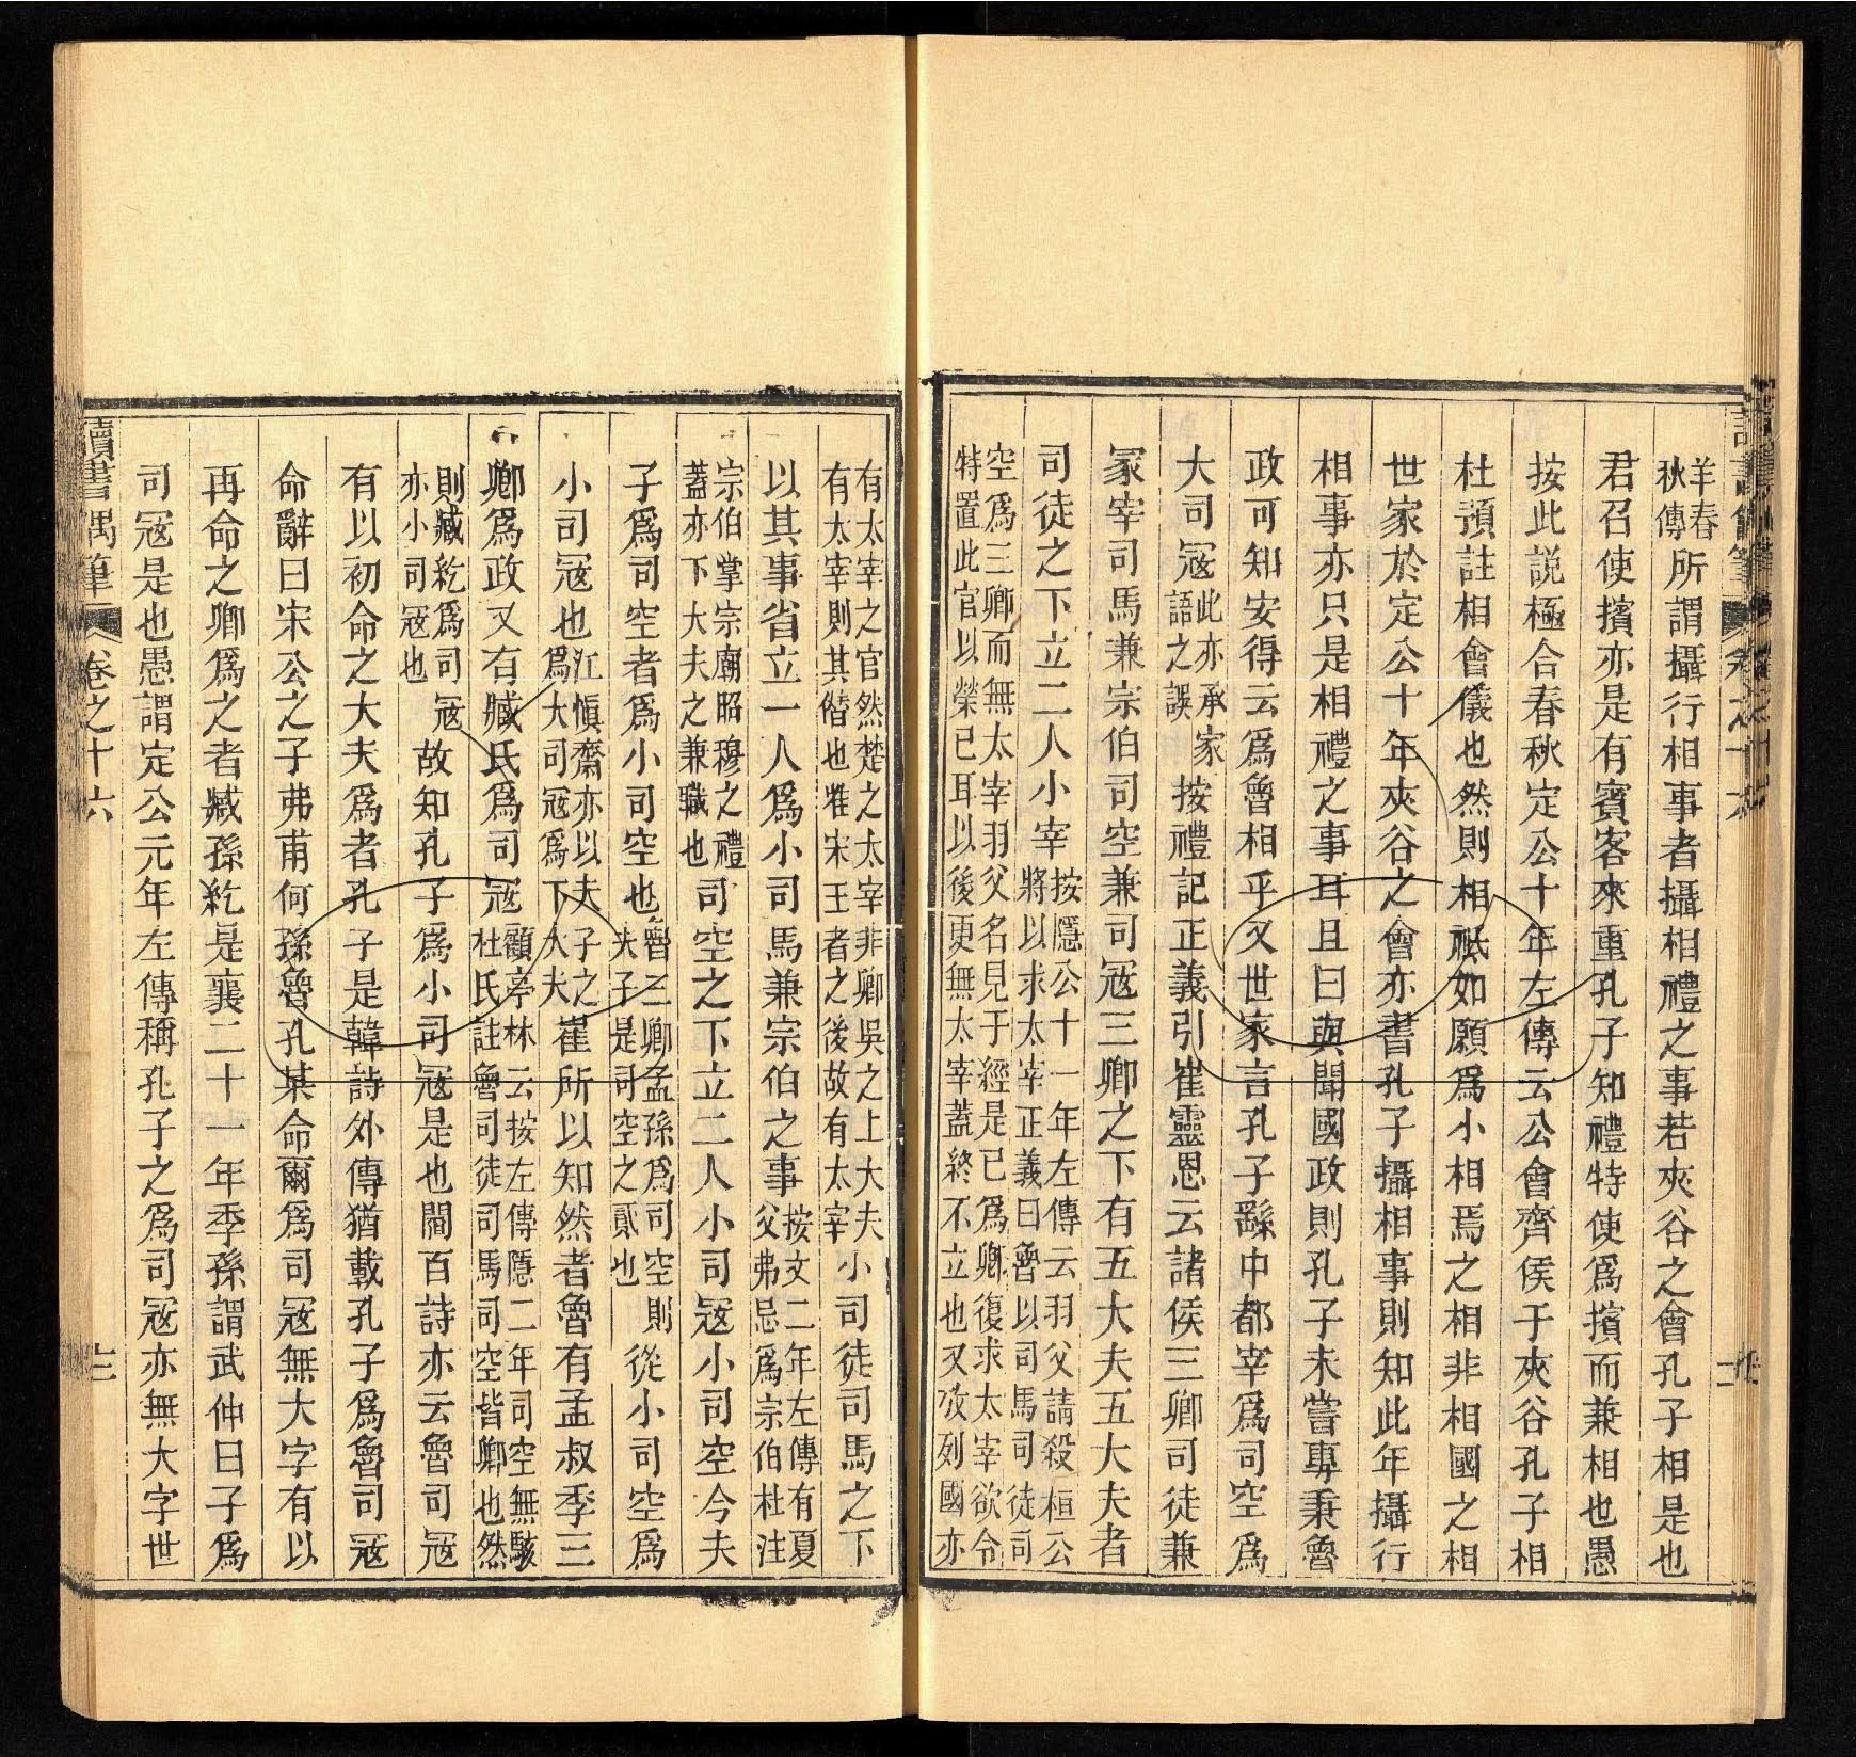 羊春秋傳所謂攝行相事者攝相禮之事若夾谷之會孔子相是也
君召使擯亦是有賓客來重孔子知禮特使爲擯而兼相也愚
按此説極合春秋定公十年左傳云公會齊侯于夾谷孔子相
杜預註相會儀也然則相祗如願爲小相焉之相非相國之相
世家於定公十年夾谷之會亦書孔子攝相事則知此年攝行
相事亦只是相禮之事耳且曰與聞國政則孔子未嘗專秉魯
政可知安得云爲魯相乎又世家言孔子繇中都宰爲司空爲
大司寇此亦承家語之誤按禮記正義引崔靈恩云諸侯三卿司徒兼
冢宰司馬兼宗伯司空兼司寇三卿之下有五大夫五大夫者
司徒之下立二人小宰按隱公十一年左傳云羽父請殺桓公將以求太宰正義曰魯以司馬司徒司
空爲三卿而無太宰羽父名見于經是已爲卿復求太宰欲令特置此官以榮已耳以後更無太宰蓋終不立也又攷列國亦
有太宰之官然楚之太宰非卿吳之上大夫有太宰則其僭也惟宋王者之後故有太宰小司徒司馬之下
以其事省立一人爲小司馬兼宗伯之事按文二年左傳有夏父弗忌爲宗伯杜注
宗伯掌宗廟昭穆之禮蓋亦下大夫之兼職也司空之下立二人小司寇小司空今夫
子爲司空者爲小司空也魯三卿孟孫爲司空則夫子是司空之貳也從小司空爲
小司寇也江愼齋亦以夫子之爲大司寇爲下大夫崔所以知然者魯有孟叔季三
卿爲政又有臧氏爲司寇顧亭林云按左傳隱二年司空無駭杜氏註魯司徒司馬司空皆卿也然
則臧紇爲司寇亦小司寇也故知孔子爲小司寇是也閻百詩亦云魯司寇
有以初命之大夫爲者孔子是韓詩外傳猶載孔子爲魯司寇
命辭曰宋公之子弗甫何孫魯孔某命爾爲司寇無大字有以
再命之卿爲之者臧孫紇是襄二十一年季孫謂武仲曰子爲
司寇是也愚謂定公元年左傳稱孔子之爲司寇亦無大字世
讀書偶筆 卷之十六